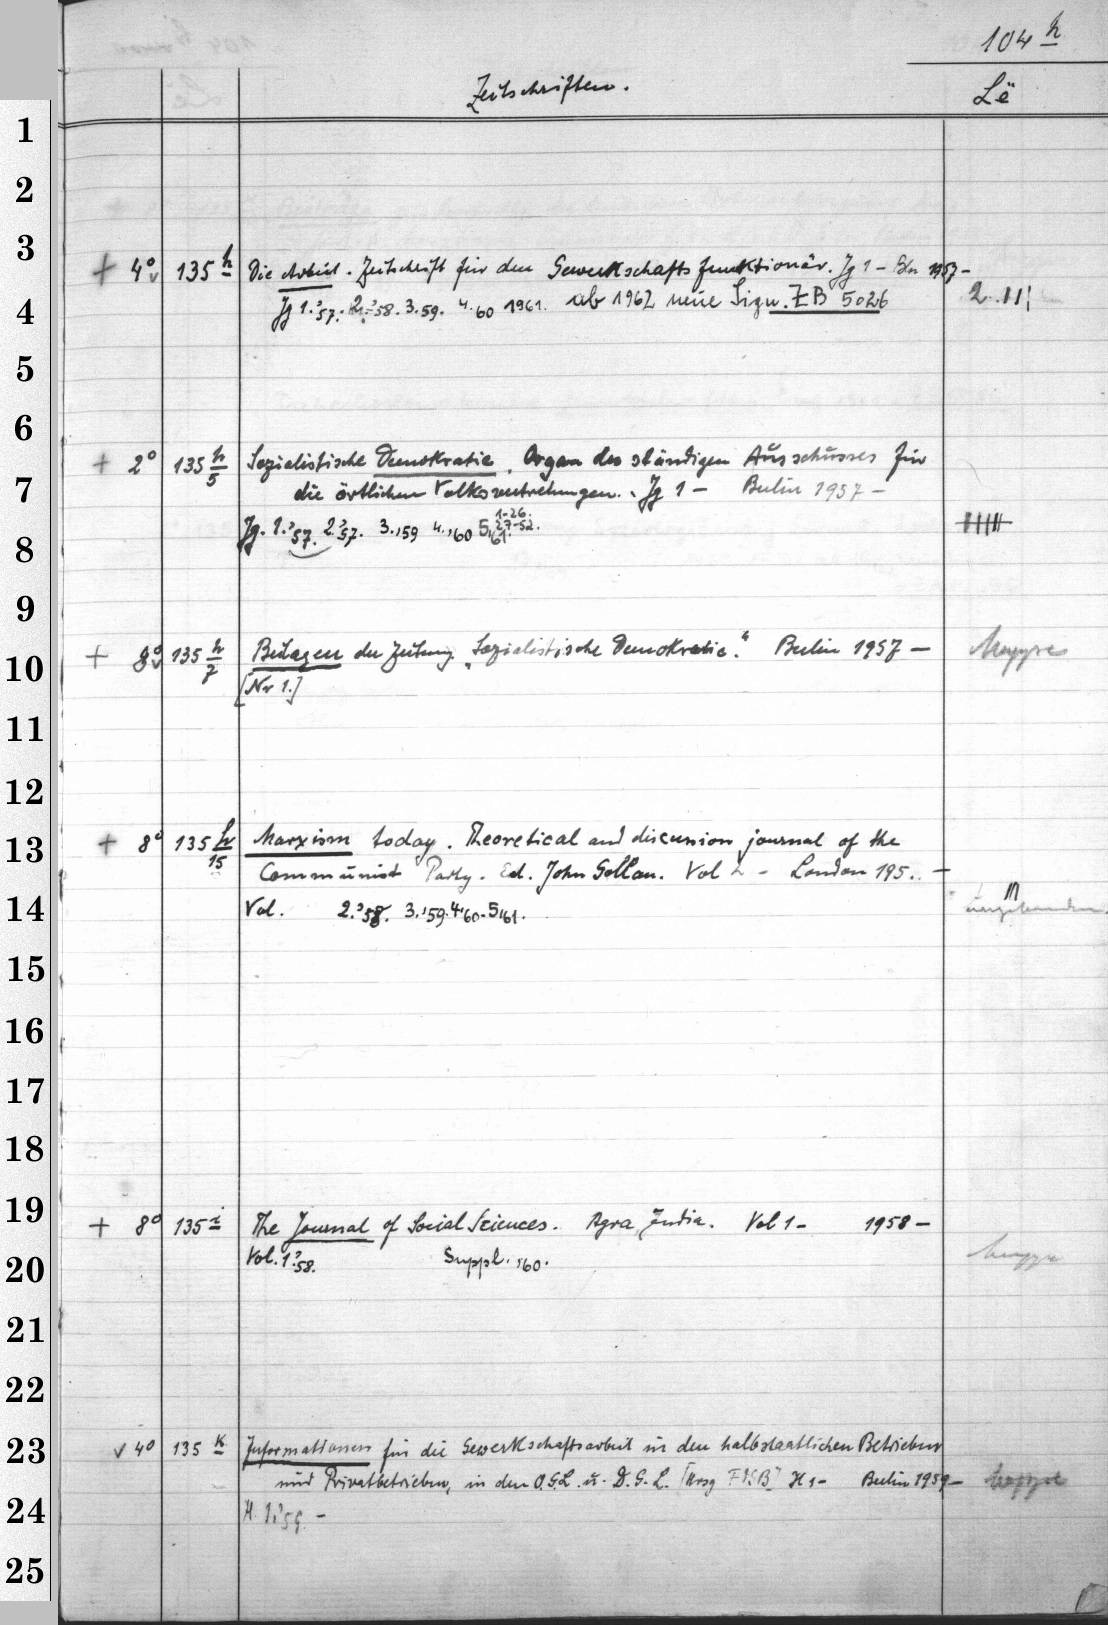 104 h
Zeitschriften. Lë
1
2
3
+ 4° 135 h Die Arbeit. Zeitschrift für den Gewerkschaftsfunktionär. Jg 1 - Bln 1957-
4 Jg 1.'57. 2.'58. 3.59. 4.60 1961. ab 1962 neue Sign. ZB 5026
5
6
+ 2° 135 h/5 Sozialistische Demokratie. Organ des ständigen Ausschusses für
7 die örtlichen Volksvertretungen. Jg 1 - Berlin 1957 -
1-26.
27-52.
8 Jg. 1.'57. 2.'57. 3.,59 4.,60 5,61.
9
+ 8° 135 h/7 Beilagen der Zeitung „Sozialistische Demokratie.“ Berlin 1957 - Mappe
10 [Nr 1.]
11
12
13 + 8° 135 h/15 Marxism today. Theoretical and discussion journal of the
Communist Party. Ed. John Gollan. Vol 2 - London 195.. -
14 Vol. 2.'58. 3.'59. 4'60. 5'61. ungebunden.
15
16
17
18
19 + 8° 135 i The Journal of Social Sciences. Agra, India. Vol 1 - 1958 -
20 Vol. 1.'58. Suppl. '60. Mappe
21
22
23 v 4° 135 k Informationen für die Gewerkschaftsarbeit in den halbstaatlichen Betrieben
und Privatbetrieben, in den O.G.L. u. D.G.L. [Hrsg F.K.B] H 1 - Berlin 1959 - Mappe
24 H. 1.'59. -
25